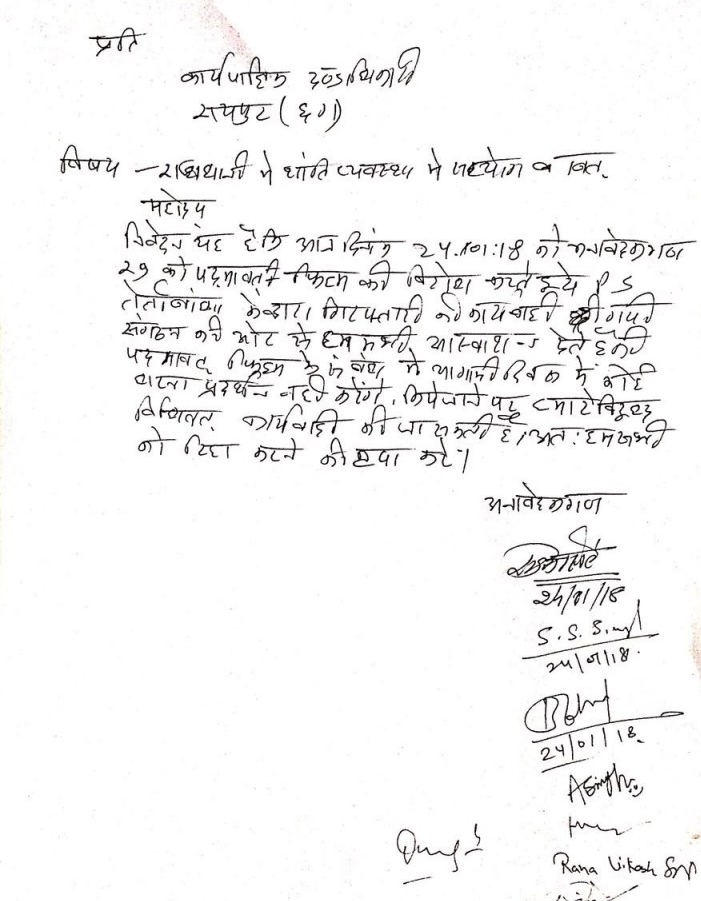 प्रति
कार्यपालिक दण्डाधिकारी
रायपुर (छग)
विषय – राजधानी मे शांति व्यवस्था मे सहयोग बाबत.
महोदय
निवेदन यह है कि आज दिनांक 24.01.18 को आवेदकगण
29 को पदमावती फिल्म का विरोध करते हुये P S
के द्वारा गिरफ्तारी की कार्यवाही की गयी
संगठन की ओर से हम सभी आस्वाशन देते है की
पदमावत फिल्म के संबंध मे आगामी दिवस मे कोई
धरना प्रदर्शन नही करेंगे, किये जाने पर हमारे विरूध्द
विधिवत कार्यवाही की जा सकती है। अतः हम सभी
को रिहा करने की कृपा करे।
आवेदकगण
24/01/18
S. S. Singh
24/01/18.
24/01/18.
ASingh
Rana Vikash Singh